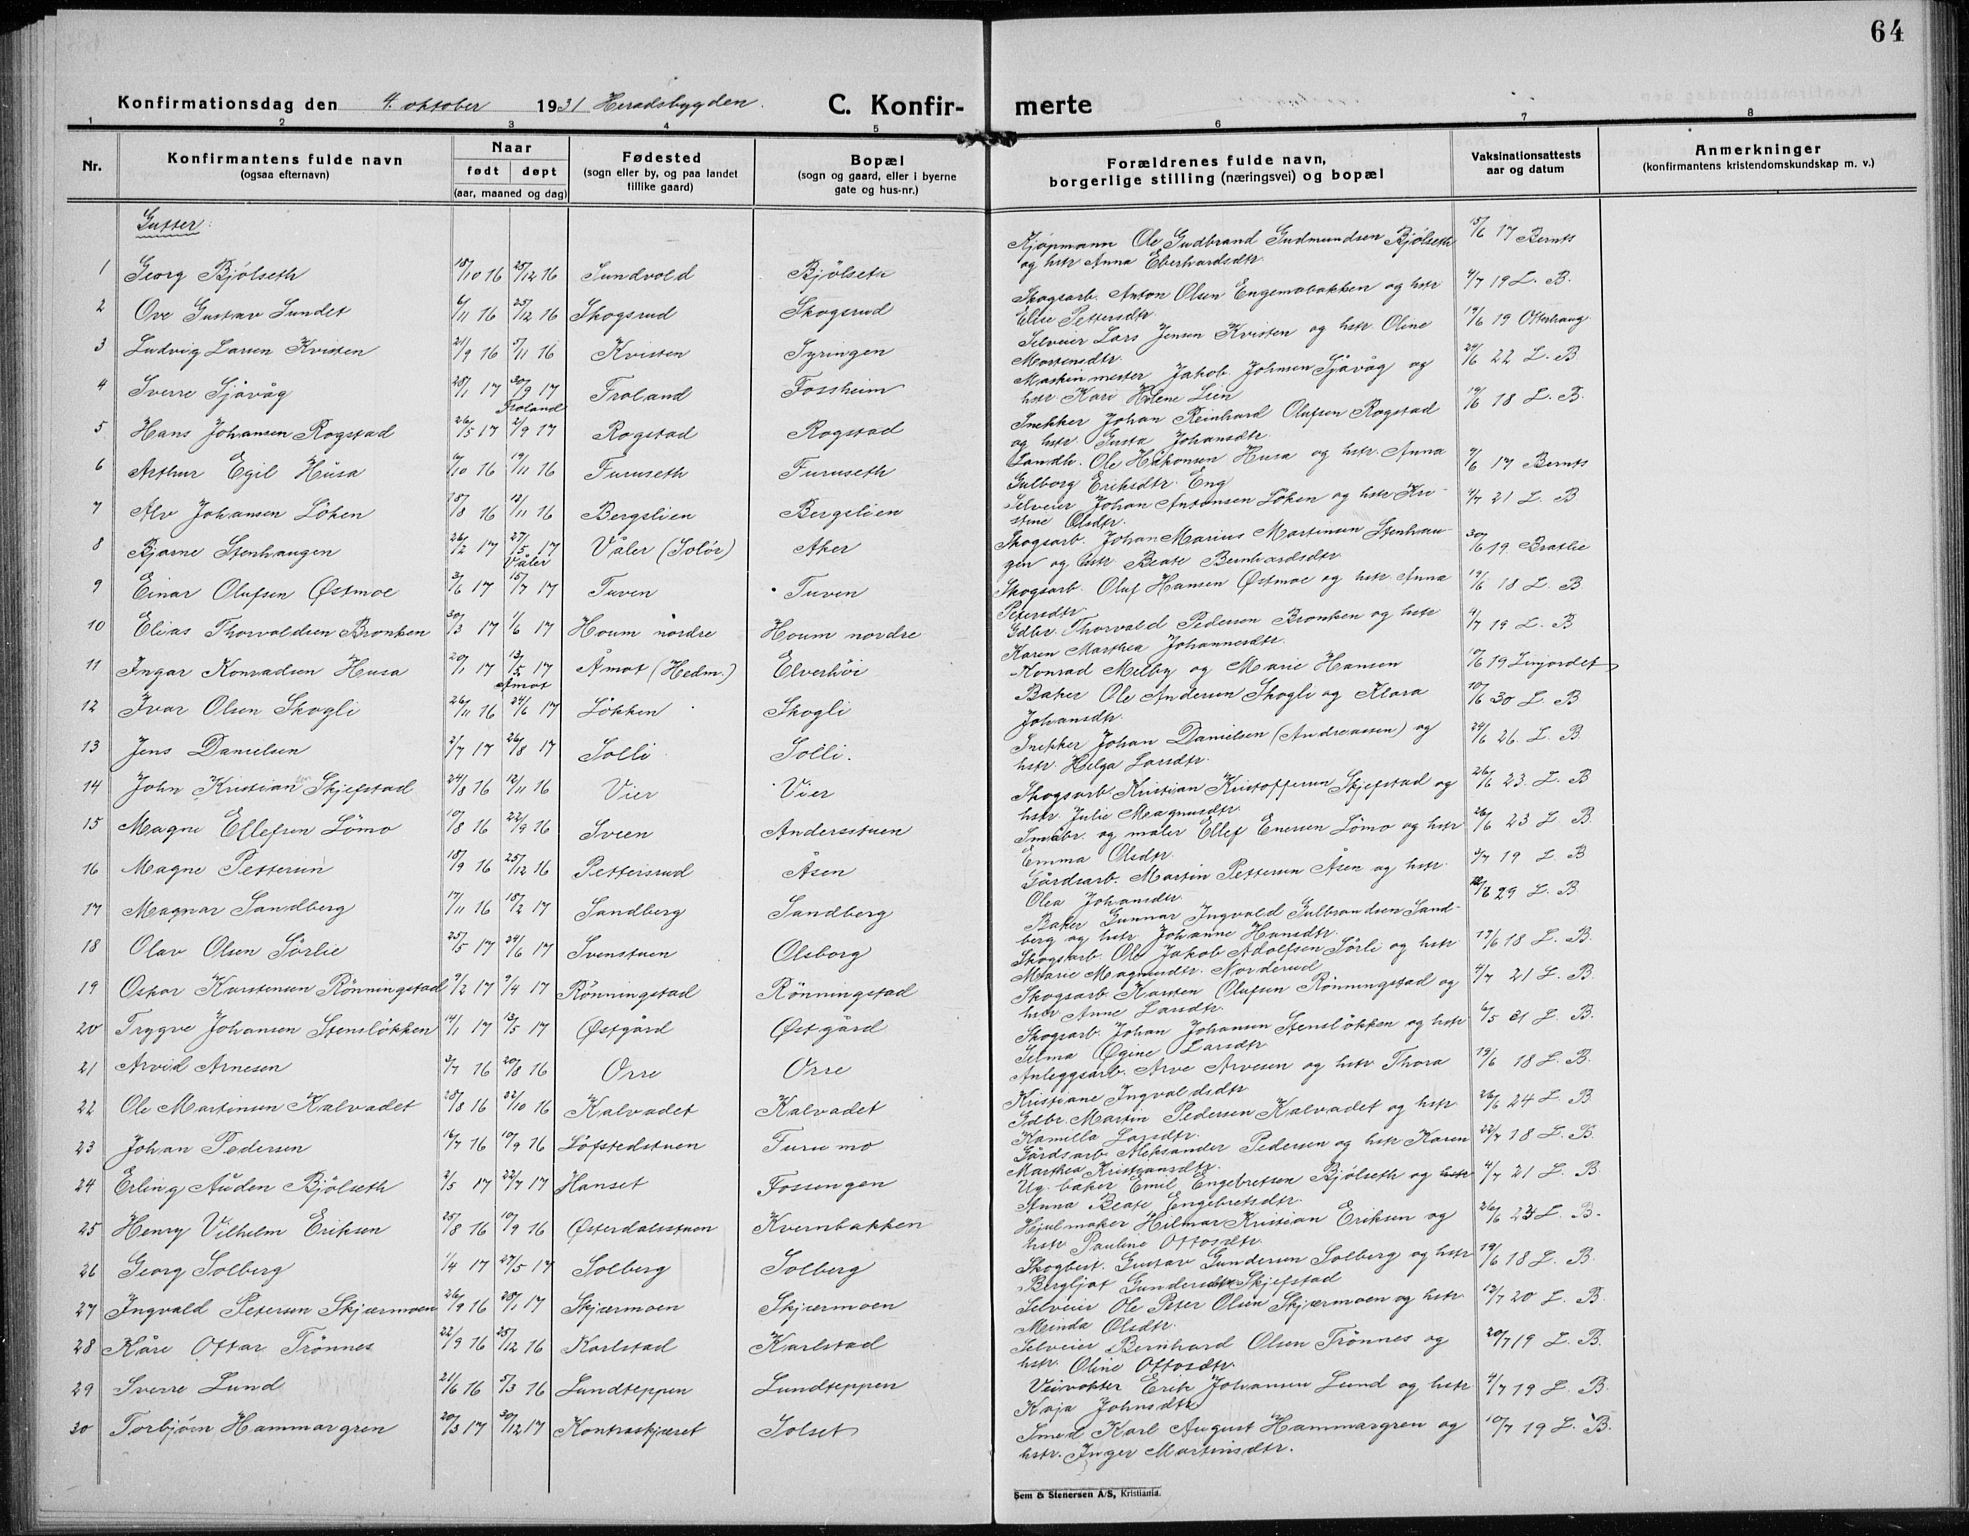 64
Konfirmationsdag den 4. oktober 1931 Heradsbygden. C. Konfir- merte
1 2 3 4 5 6 7 8
Nr. Konfirmantens fulde navn (ogsaa efternavn) Naar født døpt (aar, maaned og dag) Fødested (sogn eller by, og paa landet tillike gaard) Bopæl (sogn og gaard, eller i byerne gate og hus-nr.) Forældrenes fulde navn, borgerlige stilling (næringsvei) og bopæl Vaksinationsattests aar og datum Anmerkninger (konfirmantens kristendomskundskap m. v.)
Gutter:
1 Georg Bjölseth 18/10 16 25/12 16 Sundvold Bjölseth Kjöpmann Ole Gudbrand Gudmundsen Bjölseth og hstr Anna Eberhardsdtr. 15/6 17 Bernts
2 Ove Gustav Sundet 6/11 16 25/12 16 Skogsrud Skogsrud Skogsarb. Anton Olsen Engemobakken og hstr Elise Pettersdtr. 4/7 19 L. B.
3 Ludvig Larsen Kvisten 21/9 16 5/11 16 Kvisten Syringen Selveier Lars Jensen Kvisten og hstr Oline Mortensdtr. 19/6 19 Otterhaug
4 Sverre Sjövåg 28/1 17 30/9 17 Froland Froland Fossheim Maskinmester Jakob Johnsen Sjövåg og hstr Kari Helene Lien 24/6 22 L. B
5 Hans Johansen Rogstad 26/5 17 2/9 17 Rogstad Rogstad Snekker Johan Reinhard Olufsen Rogstad og hstr Gusta Johansdtr. 19/6 18 L. B.
6 Arthur Egil Husa 6/10 16 19/11 16 Furuseth Furuseth Landh. Ole Håkonsen Husa og hstr. Anna Gulborg Eriksdtr. Eng 7/6 17 Bernts
7 Alv Johansen Löken 18/8 16 13/11 16 Bergslien Bergslien Selveier Johan Antonsen Löken og hstr Kristine Olsdtr. 4/7 21 L. B
8 Bjarne Stenhaugen 26/2 17 27/5 17 Våler Våler (Solör) Aker Skogsarb. Johan Marius Martinsen Stenhaugen og hstr Beate Bernhardsdtr. 30/6 19 Bratlie
9 Einar Olufsen Østmoe 3/6 17 15/7 17 Tuven Tuven Skogsarb. Oluf Hansen Østmoe og hstr. Anna Petersdtr. 19/6 18 L. B
10 Elias Thorvaldsen Bronken 30/3 17 1/6 17 Houm nordre Houm nordre Gdbr. Thorvald Pedersen Bronken og hstr Karen Marthea Johannesdtr. 4/7 19 L. B
11 Ingar Konradsen Husa 20/1 17 13/5 17 Åmot Åmot (Hedm.) Elverhöi Konrad Melby og Marie Hansen 10/6 19 Linjordet
12 Ivar Olsen Skogli 26/11 16 24/6 17 Lökken Skogli Baker Ole Andersen Skogli og Klara Johansdtr. 10/6 30 L. B
13 Jens Danielsen 2/7 17 26/8 17 Solli Solli. Snekker Johan Danielsen (Andreassen) og hstr. Helga Larsdtr. 24/6 26. L. B.
14 John Kristian Skjefstad 24/8 16 12/11 16 Vier Vier Skogsarb. Kristian Kristoffersen Skjefstad og hstr Julie Magnusdtr. 26/6 23. L. B
15 Magne Ellefsen Lömo 10/8 16 22/9 16 Sveen Andersstuen Småbr. og maler Ellef Enersen Lömo og hstr Emma Olsdtr. 26/6 23 L B.
16 Magne Pettersen 18/9 16 25/12 16 Pettersrud Åsen Gårdsarb. Martin Pettersen Åsen og hstr. Olea Johansdtr. 3/7 19 L. B
17 Magnar Sandberg 17/11 16 18/2 17 Sandberg Sandberg Baker Gunnar Ingvald Gulbrandsen Sandberg og hstr. Johanne Hansdtr. 12/6 29 L. B
18 Olav Olsen Sörlie 25/5 17 24/6 17 Svenstuen Olsborg Skogsarb. Ole Jakob Adolfsen Sörli og hstr Marie Magnusdtr. Norderud 19/6 18 L. B.
19 Oskar Karstensen Rönningstad 9/2 17 9/4 17 Rönningstad Rönningstad Skogsarb Karsten Olufsen Rönningstad og hstr Anne Larsdtr. 4/7 21 L. B.
20 Trygve Johansen Stenslökken 14/1 17 13/5 17 Østgård Østgård Skogsarb. Johan Johansen Stenslökken og hstr Selma Øgine Larsdtr 6/5 31 L. B.
21 Arvid Arnesen 3/7 16 20/8 16 Orre Orre Anleggsarb. Arve Arvesen og hstr Thora Kristiane Ingvaldsdtr. 19/6 18 L. B.
22 Ole Martinsen Kalvadet 28/8 16 22/10 16 Kalvadet Kalvadet Gdbr. Martin Pedersen Kalvadet og hstr. Kamilla Larsdtr. 26/6 24 L. B
23 Johan Pedersen 16/7 16 10/9 16 Löfstedstuen Furumo Gårdsarb. Aleksander Pedersen og hstr Karen Marthea Kristiansdtr. 22/7 18 L. B.
24 Erling Auden Bjölseth 2/5 17 22/7 17 Hanset Fossengen Ug. baker Emil Engebretsen Bjölseth og hstr Anna Beate Engebretsdtr. 4/7 21 L. B.
25 Henry Vilhelm Eriksen 25/8 16 10/9 16 Østerdalsstuen Kvernbakken Hjulmaker Hilmar Kristian Eriksen og hstr Pauline Ottosdtr. 26/6 23 L. B.
26 Georg Solberg 1/4 17 27/5 17 Solberg Solberg Skogbest. Gustav Gundersen Solberg og hstr Bergljot Gundersdtr Skjefstad 19/6 18 L. B.
27 Ingvald Petersen Skjærmoen 26/9 16 28/1 17 Skjærmoen Skjærmoen Selveier Ole Peter Olsen Skjærmoen og hstr. Minda Olsdtr. 12/7 20 L. B.
28 Kåre Ottar Trönnes 22/9 16 25/12 16 Karlstad Karlstad Selveier Bernhard Olsen Trönnes og hstr. Oline Ottosdtr. 20/7 19 L. B.
29 Sverre Lund 21/6 16 5/3 16 Lundteppen Lundteppen Veivokter Erik Johansen Lund og hstr Kaja Johnsdtr. 4/7 19 L. B.
30 Torbjörn Hammargren 20/3 17 30/12 17 Kontraskjæret Solset Smed Karl August Hammargren og hstr. Inger Martinsdtr. 10/7 19 L. B.
Sem & Stenersen A/S, Kristiania.